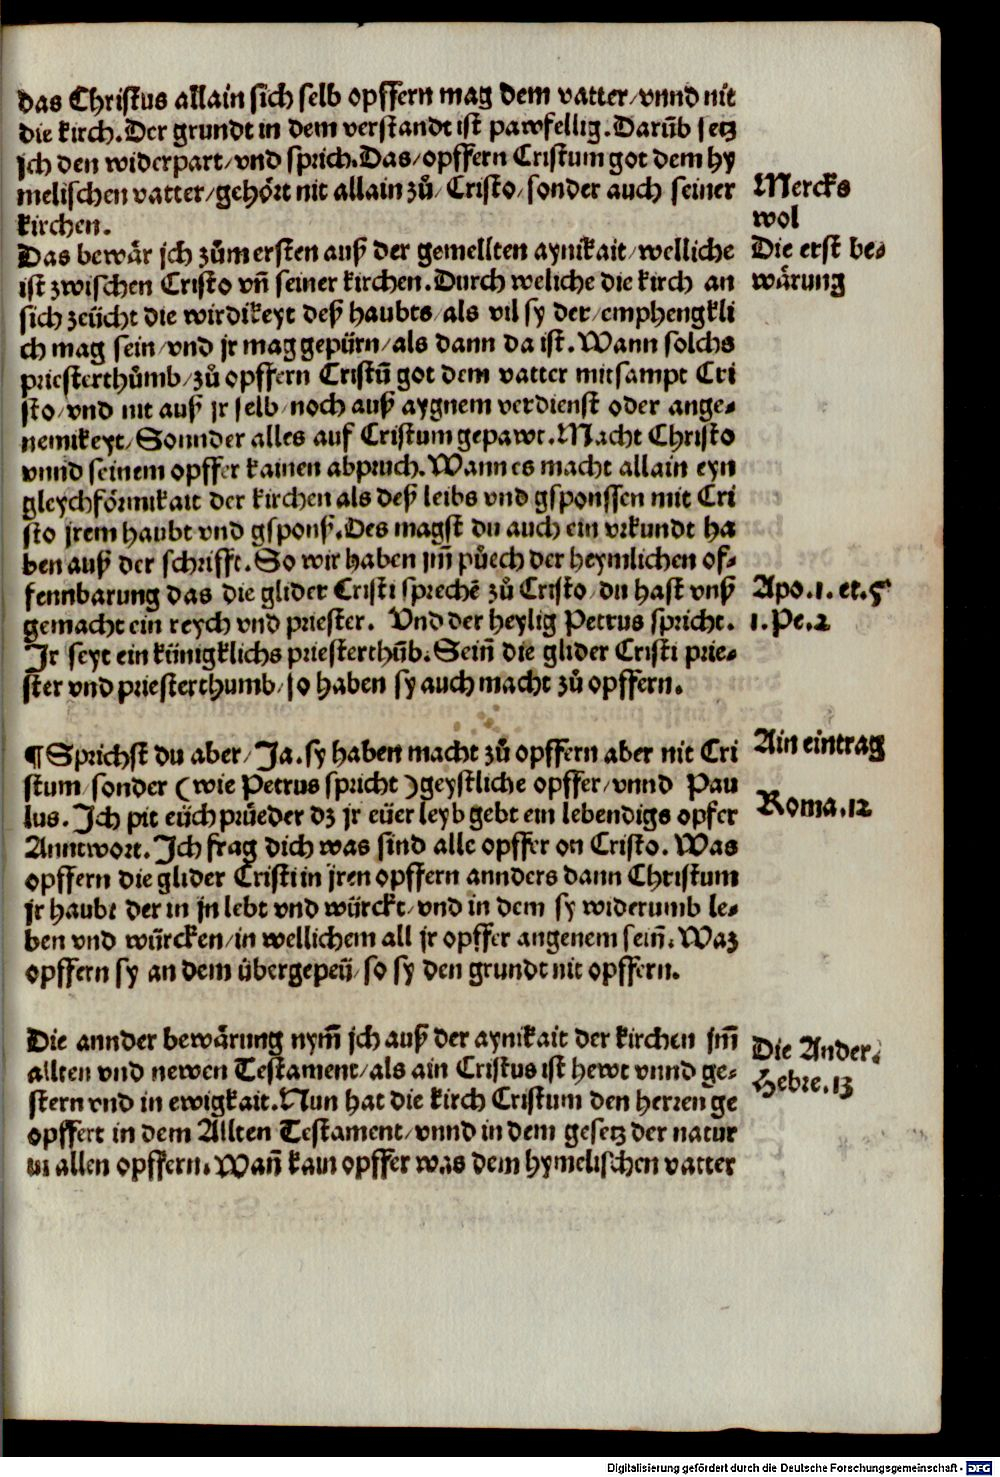 das Christus allain sich selb opffern mag dem vatter/vnnd nit
die kirch. Der grundt in dem verstandt ist pawfellig. Darūb setz
jch den widerpart/vnd sprich. Das/opffern Cristum got dem hy
melischen vatter/gehört nit allain zů/Cristo/sonder auch seiner
kirchen.
Mercks
wol
Das bewär jch zům ersten auß der gemellten aynikait/welliche
ist zwischen Cristo vn̄ seiner kirchen. Durch weliche die kirch an
sich zeücht die wirdikeyt deß haubts/als vil sy der/emphengkli
ch mag sein/vnd jr mag gepürn/als dann da ist. Wann solchs
priesterthůmb/zů opffern Cristū got dem vatter mitsampt Cri
sto/vnd nit auß jr selb/noch auß aygnem verdienst oder ange⸗
nemikeyt/Sonnder alles auf Cristum gepawt. Macht Christo
vnnd seinem opffer kainen abpruch. Wann es macht allain eyn
gleychförmikait der kirchen als deß leibs vnd gsponssen mit Cri
sto jrem haubt vnd gsponß. Des magst du auch ein vrkundt ha
ben auß der schrifft. So wir haben jm̄ půech der heymlichen of⸗
fennbarung das die glider Cristi sprechē zů Cristo/du hast vnß
gemacht ein reych vnd priester. Vnd der heylig Petrus spricht.
Jr seyt ein künigklichs priesterthūb. Sein̄ die glider Cristi prie⸗
ster vnd priesterthumb/so haben sy auch macht zů opffern.
Die erst be⸗
wärung
Apo. 1. et. 5
1. Pe. 2
¶ Sprichst du aber/Ja. sy haben macht zů opffern aber nit Cri
stum/sonder (wie Petrus spricht) geystliche opffer/vnnd Pau
lus. Jch pit eüch prüeder dz jr eüer leyb gebt ein lebendigs opfer
Anntwort. Jch frag dich was sind alle opffer on Cristo. Was
opffern die glider Cristi in jren opffern annders dann Christum
jr haubt der in jn lebt vnd würckt/vnd in dem sy widerumb le⸗
ben vnd würcken/in wellichem all jr opffer angenem sein̄. Waz
opffern sy an dem übergepeü/so sy den grundt nit opffern.
Ain eintrag
Roma. 12
Die annder bewärung nym̄ jch auß der aynikait der kirchen jm̄
allten vnd newen Testament/als ain Cristus ist hewt vnnd ge⸗
stern vnd in ewigkait. Nun hat die kirch Cristum den herren ge
opffert in dem Allten Testament/vnnd in dem gesetz der natur
in allen opffern. Wan̄ kain opffer was dem hymelischen vatter
Die Ander.
Hebre. 13
Digitalisierung gefördert durch die Deutsche Forschungsgemeinschaft - DFG